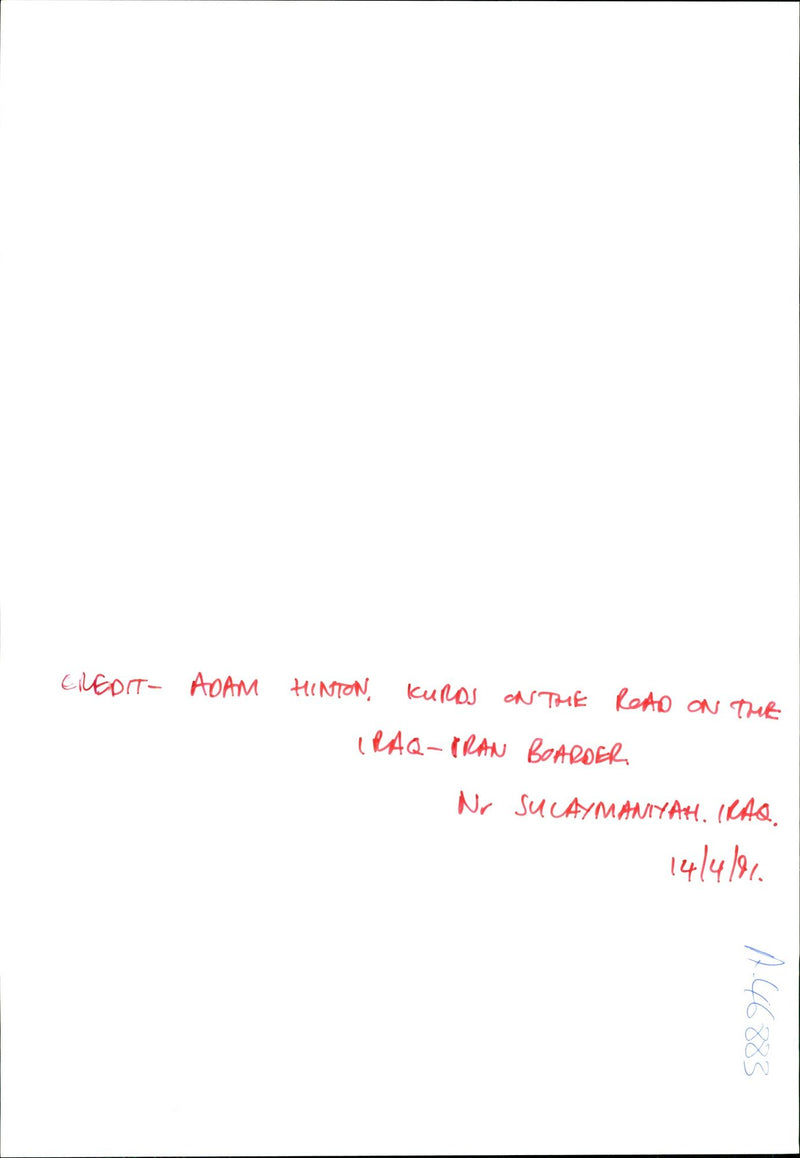 CREDIT- ADAM HINTON. KURDS ON THE ROAD ON THE
IRAQ-IRAN BOARDER.
Nr SULAYMANIYAH. IRAQ.
14/4/91.
A46883